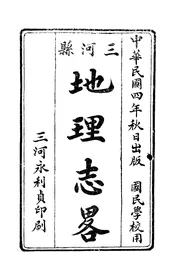 中華民國四年秋日出版 國民學校用
三河縣
地理志畧
三河永利貞印刷